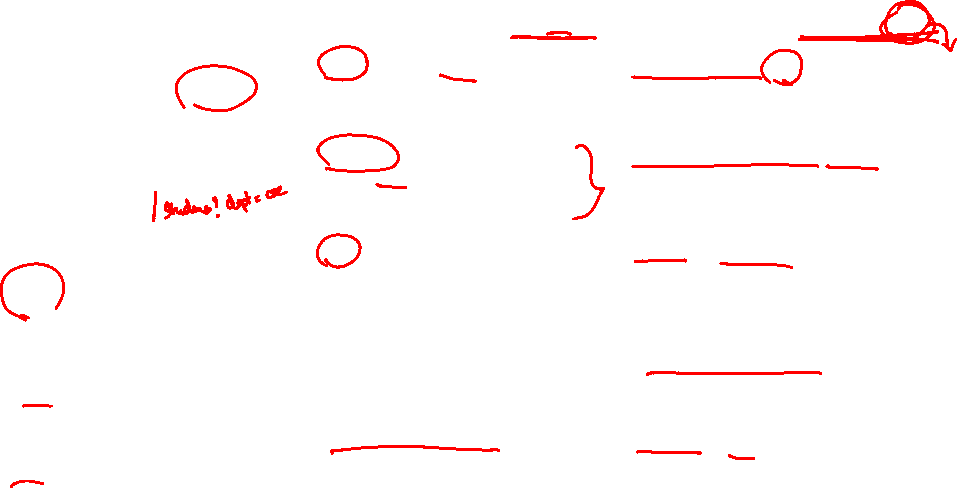 /students? dept=cse